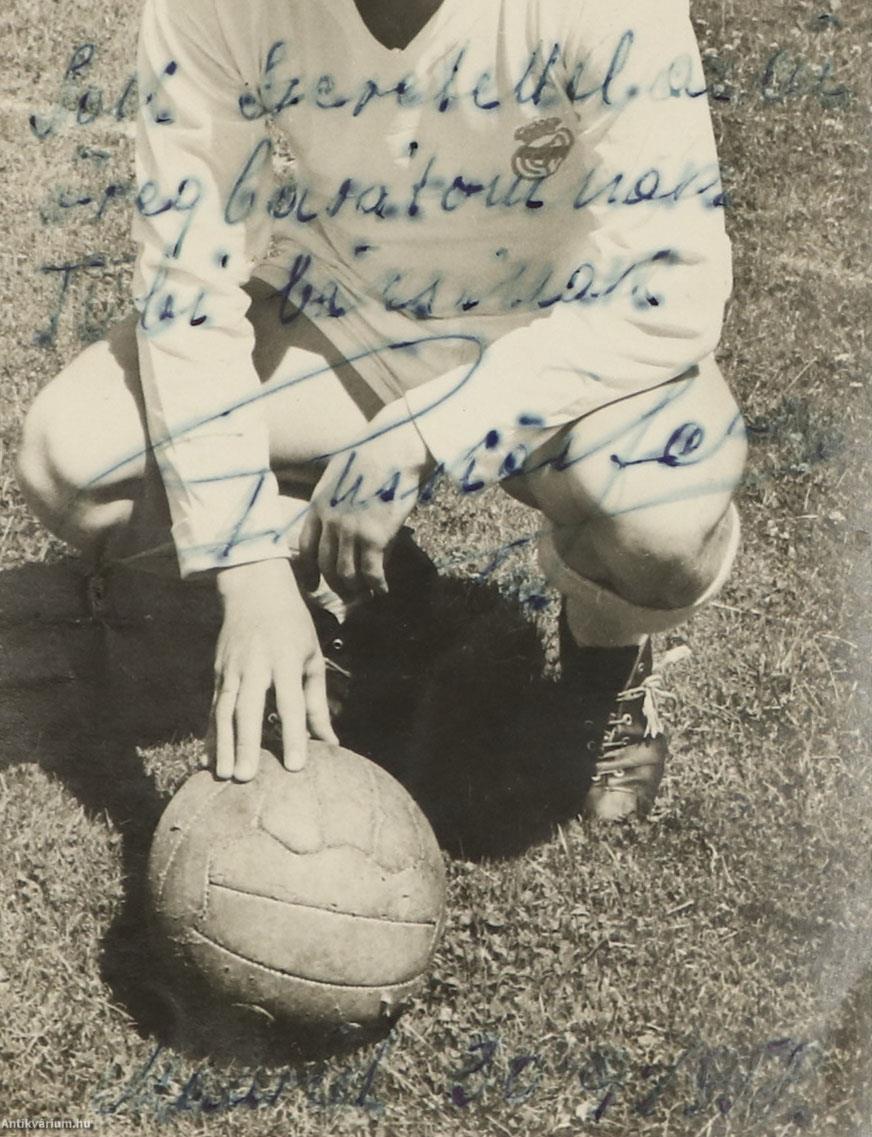 Sok szeretettel az én
öreg barátomnak
Tibi bácsinak
Puskás Fe
Madrid 30
Antikvárium.hu